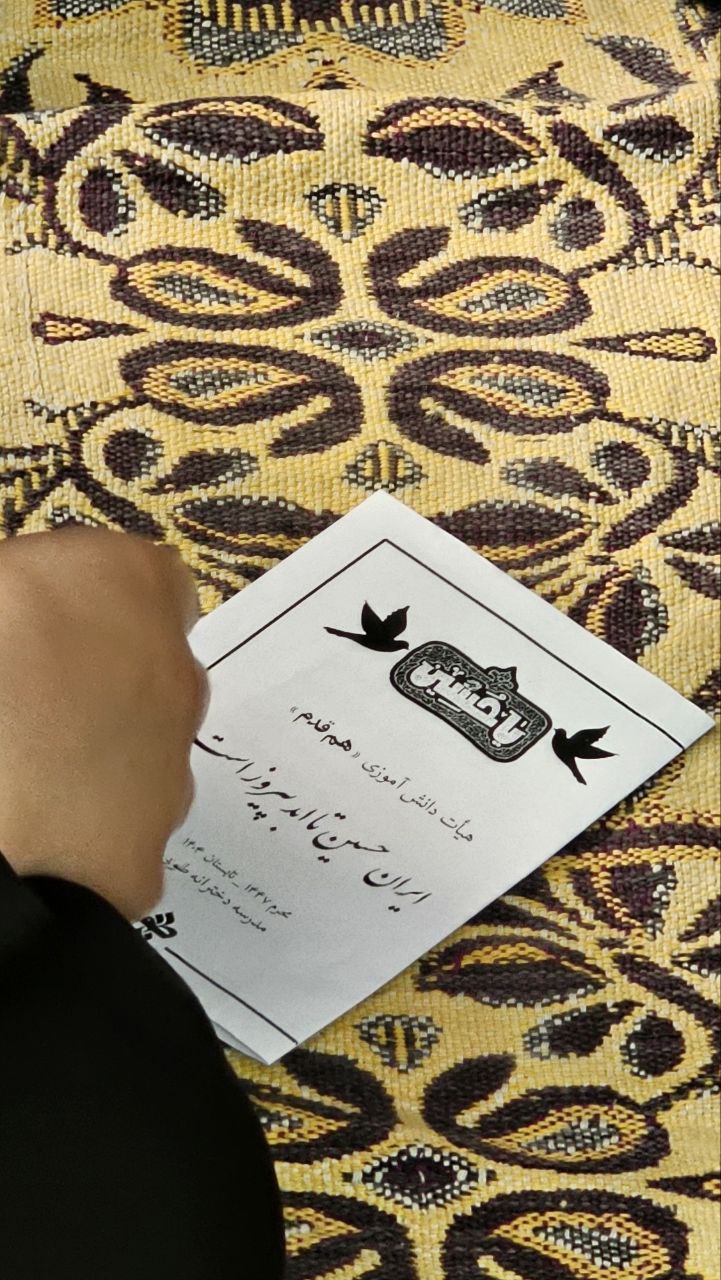 یا حسین
هیأت دانش آموزی «هم قدم»
ایران حسین تا ابد پیروز است
محرم ۱۴۴۷ - تابستان ۱۴۰۴
مدرسه دخترانه